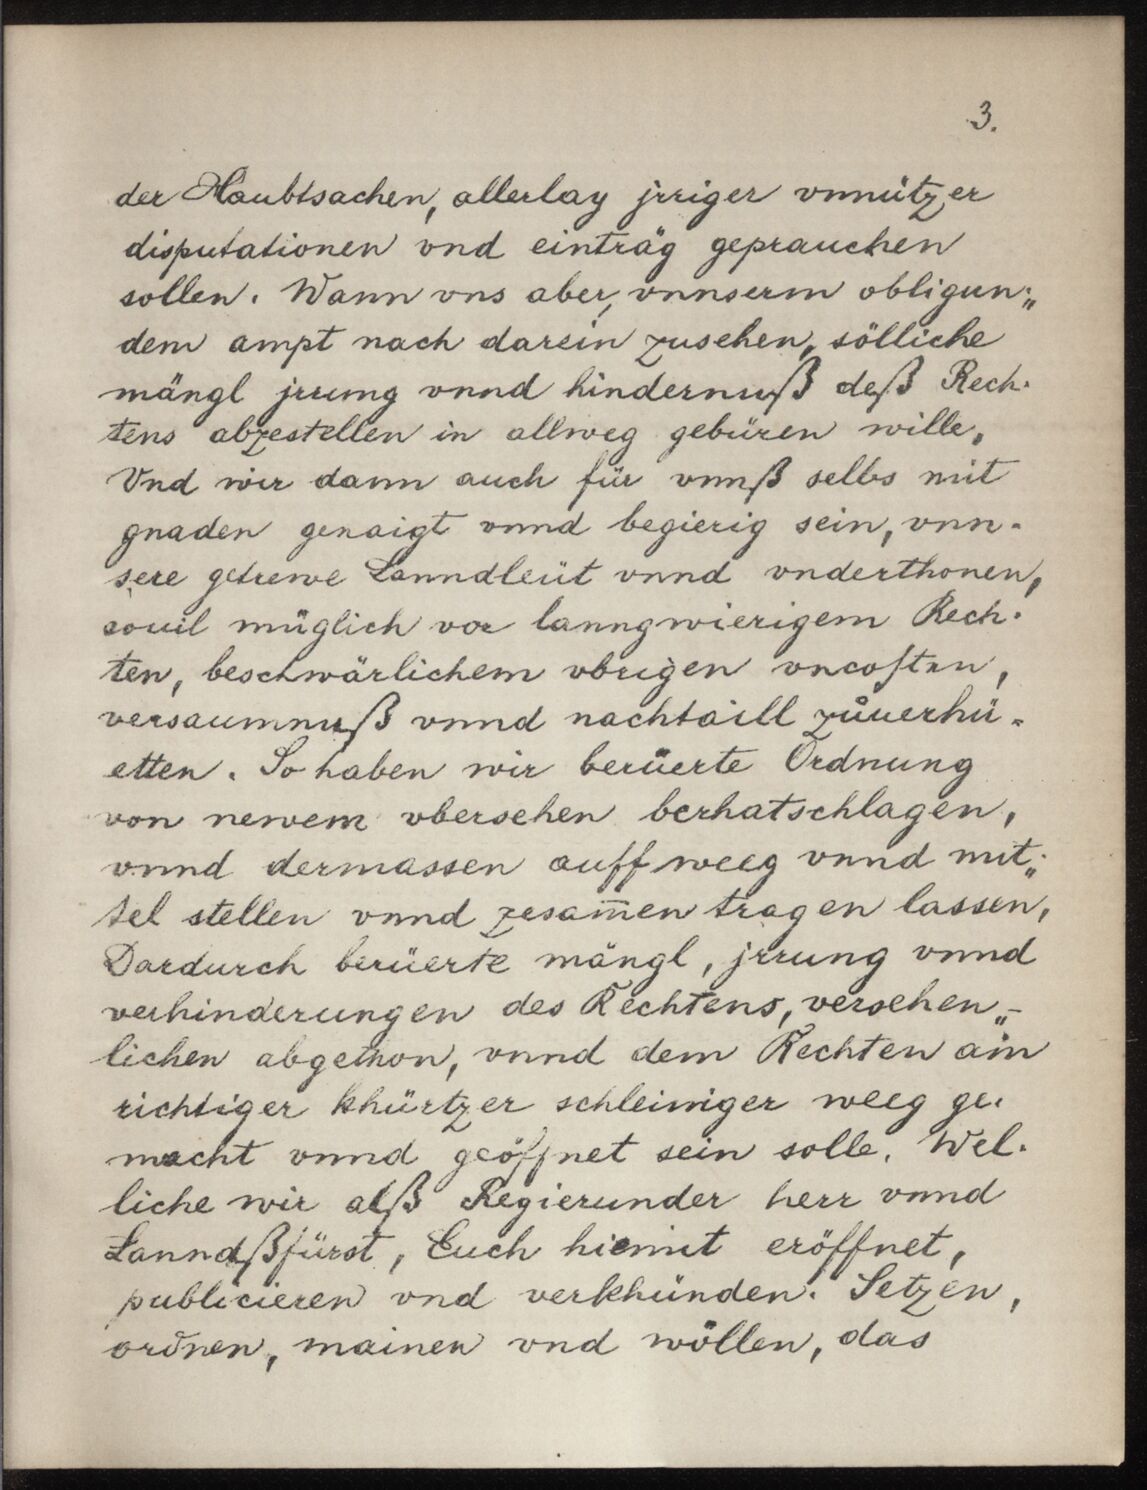 3.
der Haubtsachen, allerlay jrriger vnnützer
disputationen vnd einträg geprauchen
sollen. Wann vns aber, vnnserm obligun„
dem ampt nach darein zusehen, sölliche
mängl jrrung vnnd hindernuß deß Rech-
tens abzestellen in allweg gebüren wille,
Vnd wir dann auch für vnnß selbs mit
gnaden genaigt vnnd begierig sein, vnn-
sere getrewe Lanndleüt vnnd vnderthonen,
souil müglich vor lanngwierigem Rech-
ten, beschwärlichem vbrigen vncosten,
versaumnuß vnnd nachtaill zůuerhü-
etten. So haben wir berüerte Ordnung
von newem vbersehen berhatschlagen,
vnnd dermassen auff weeg vnnd mit„
tel stellen vnnd zesam̅en tragen lassen,
Dardurch berüerte mängl, jrrung vnnd
verhinderungen des Rechtens, versehen„-
lichen abgethon, vnnd dem Rechten ain
richtiger khürtzer schleiniger weeg ge-
macht vnnd geöffnet sein solle. Wel-
liche wir alß Regierunder herr vnnd
Lanndßfürst, Euch hiemit eröffnet,
publicieren vnd verkhünden. Setzen,
ordnen, mainen vnd wöllen, das